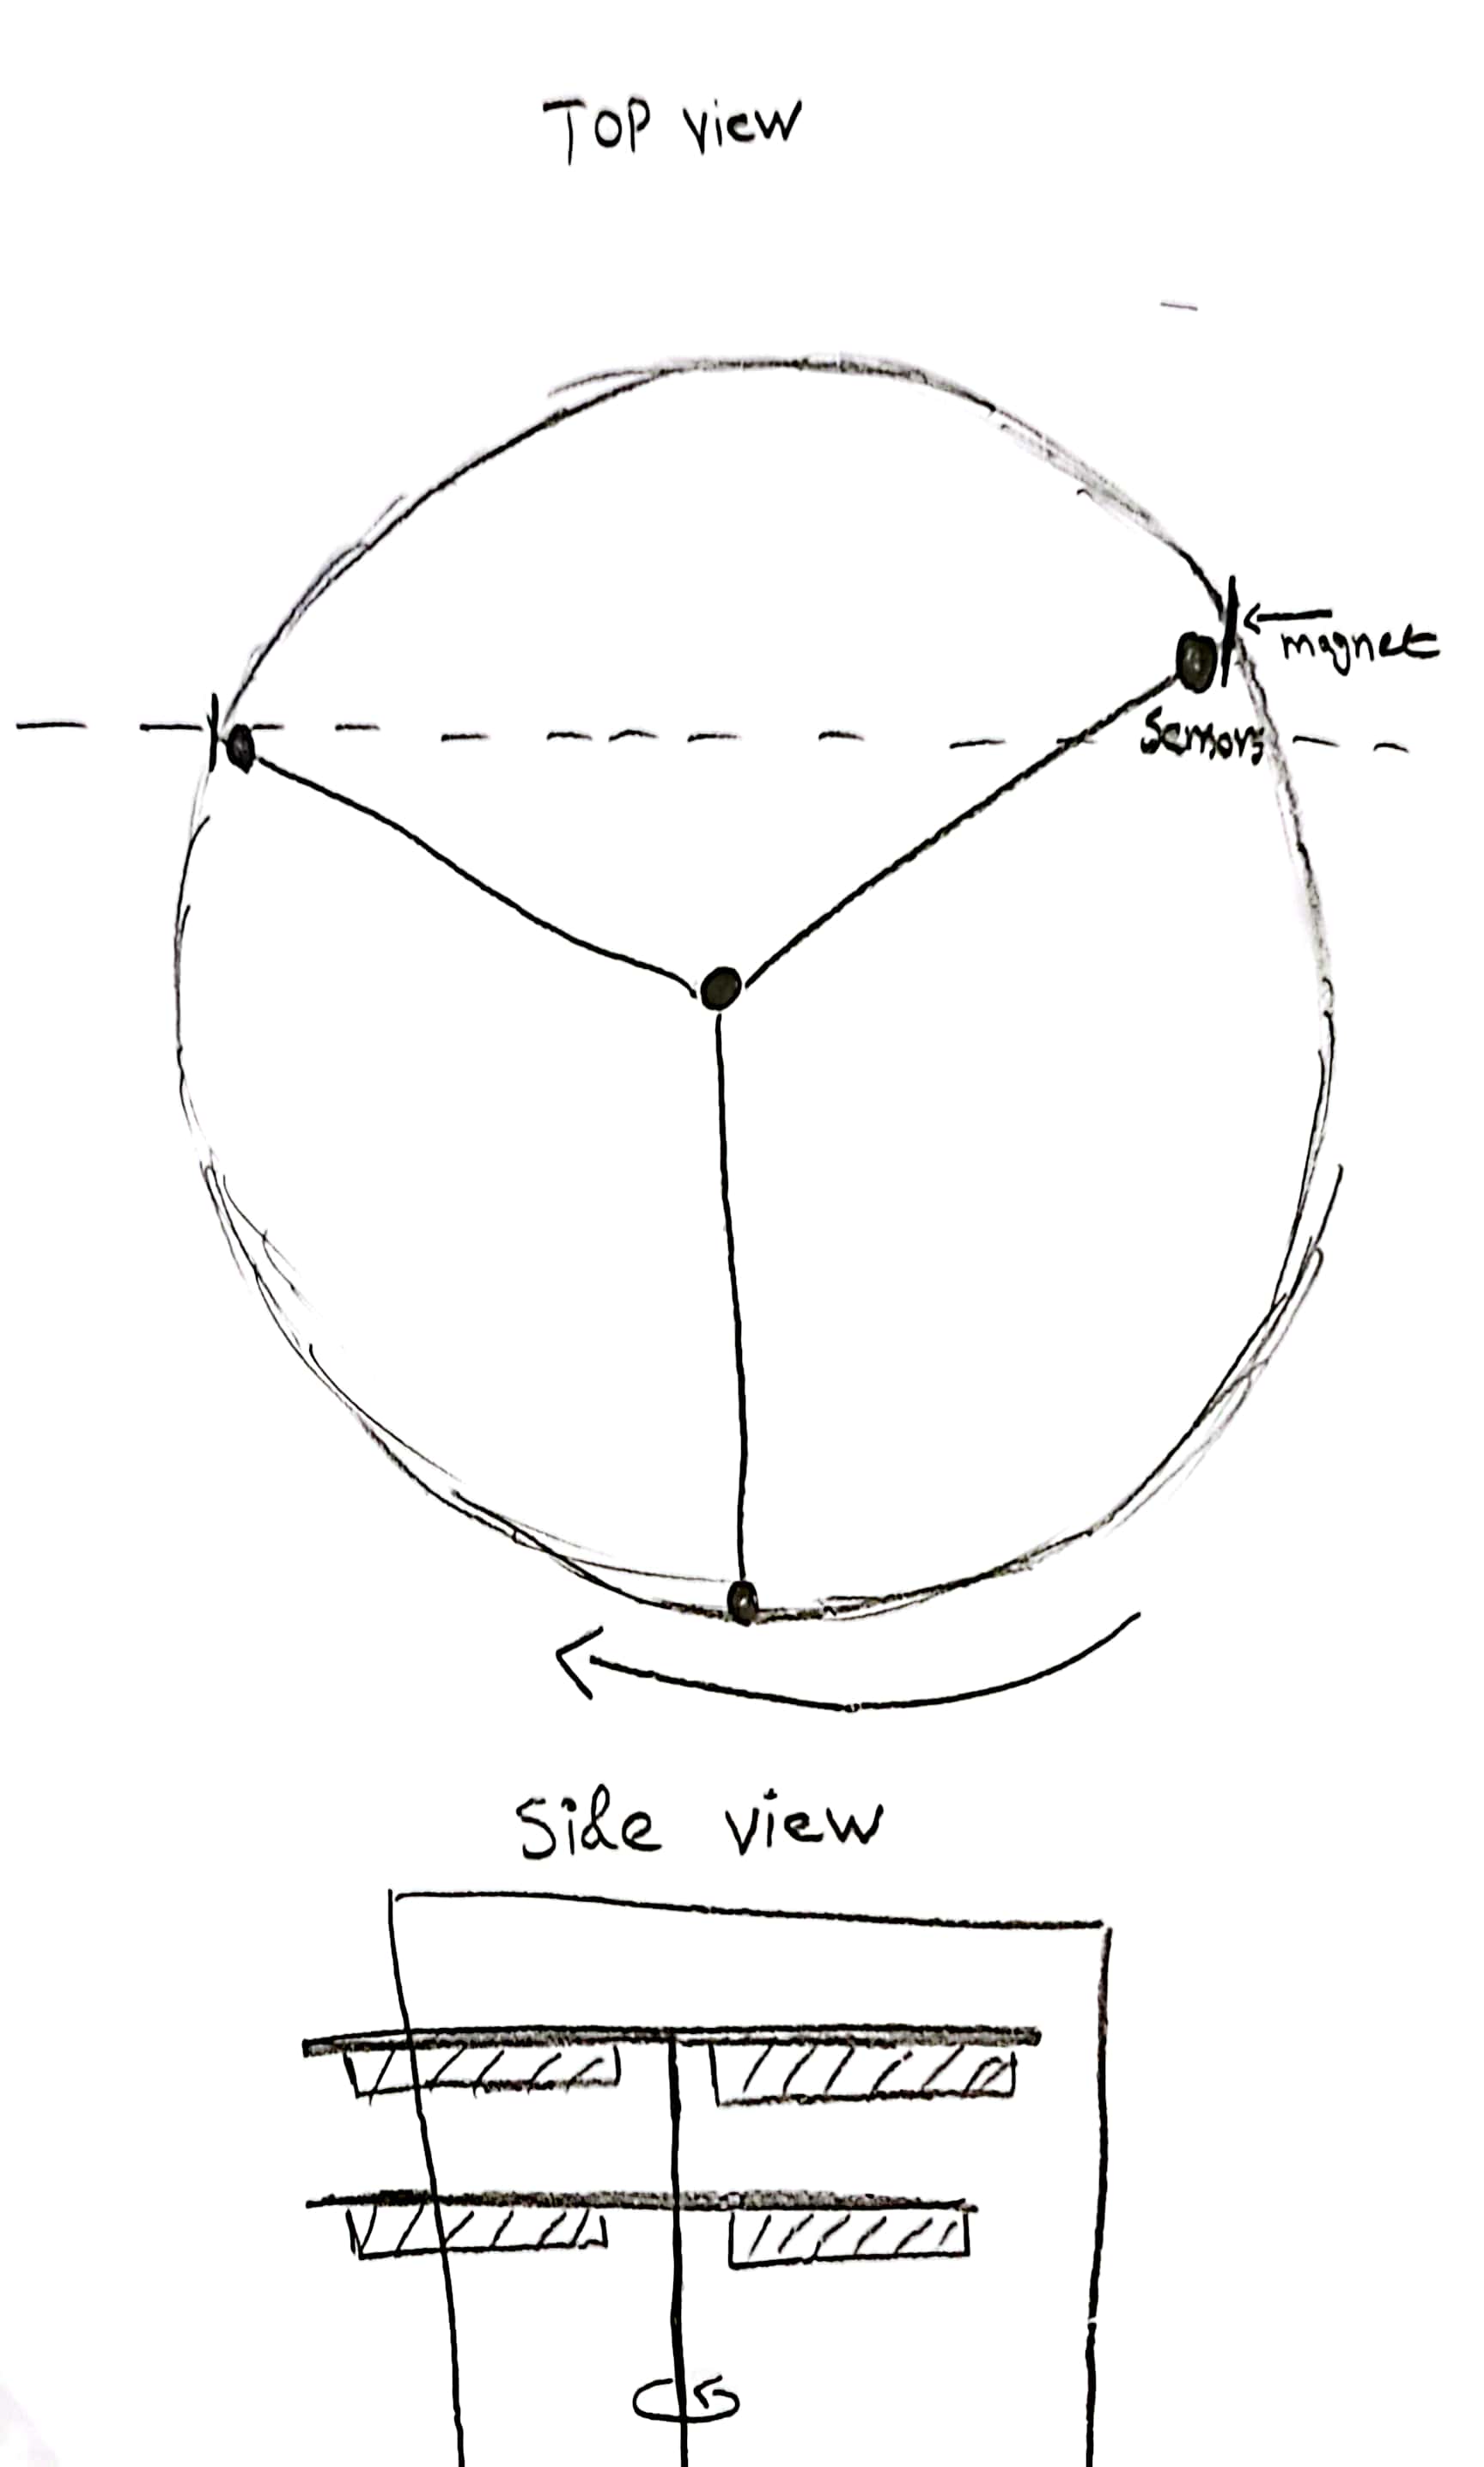 TOP view
magnet
Sensors
Side view